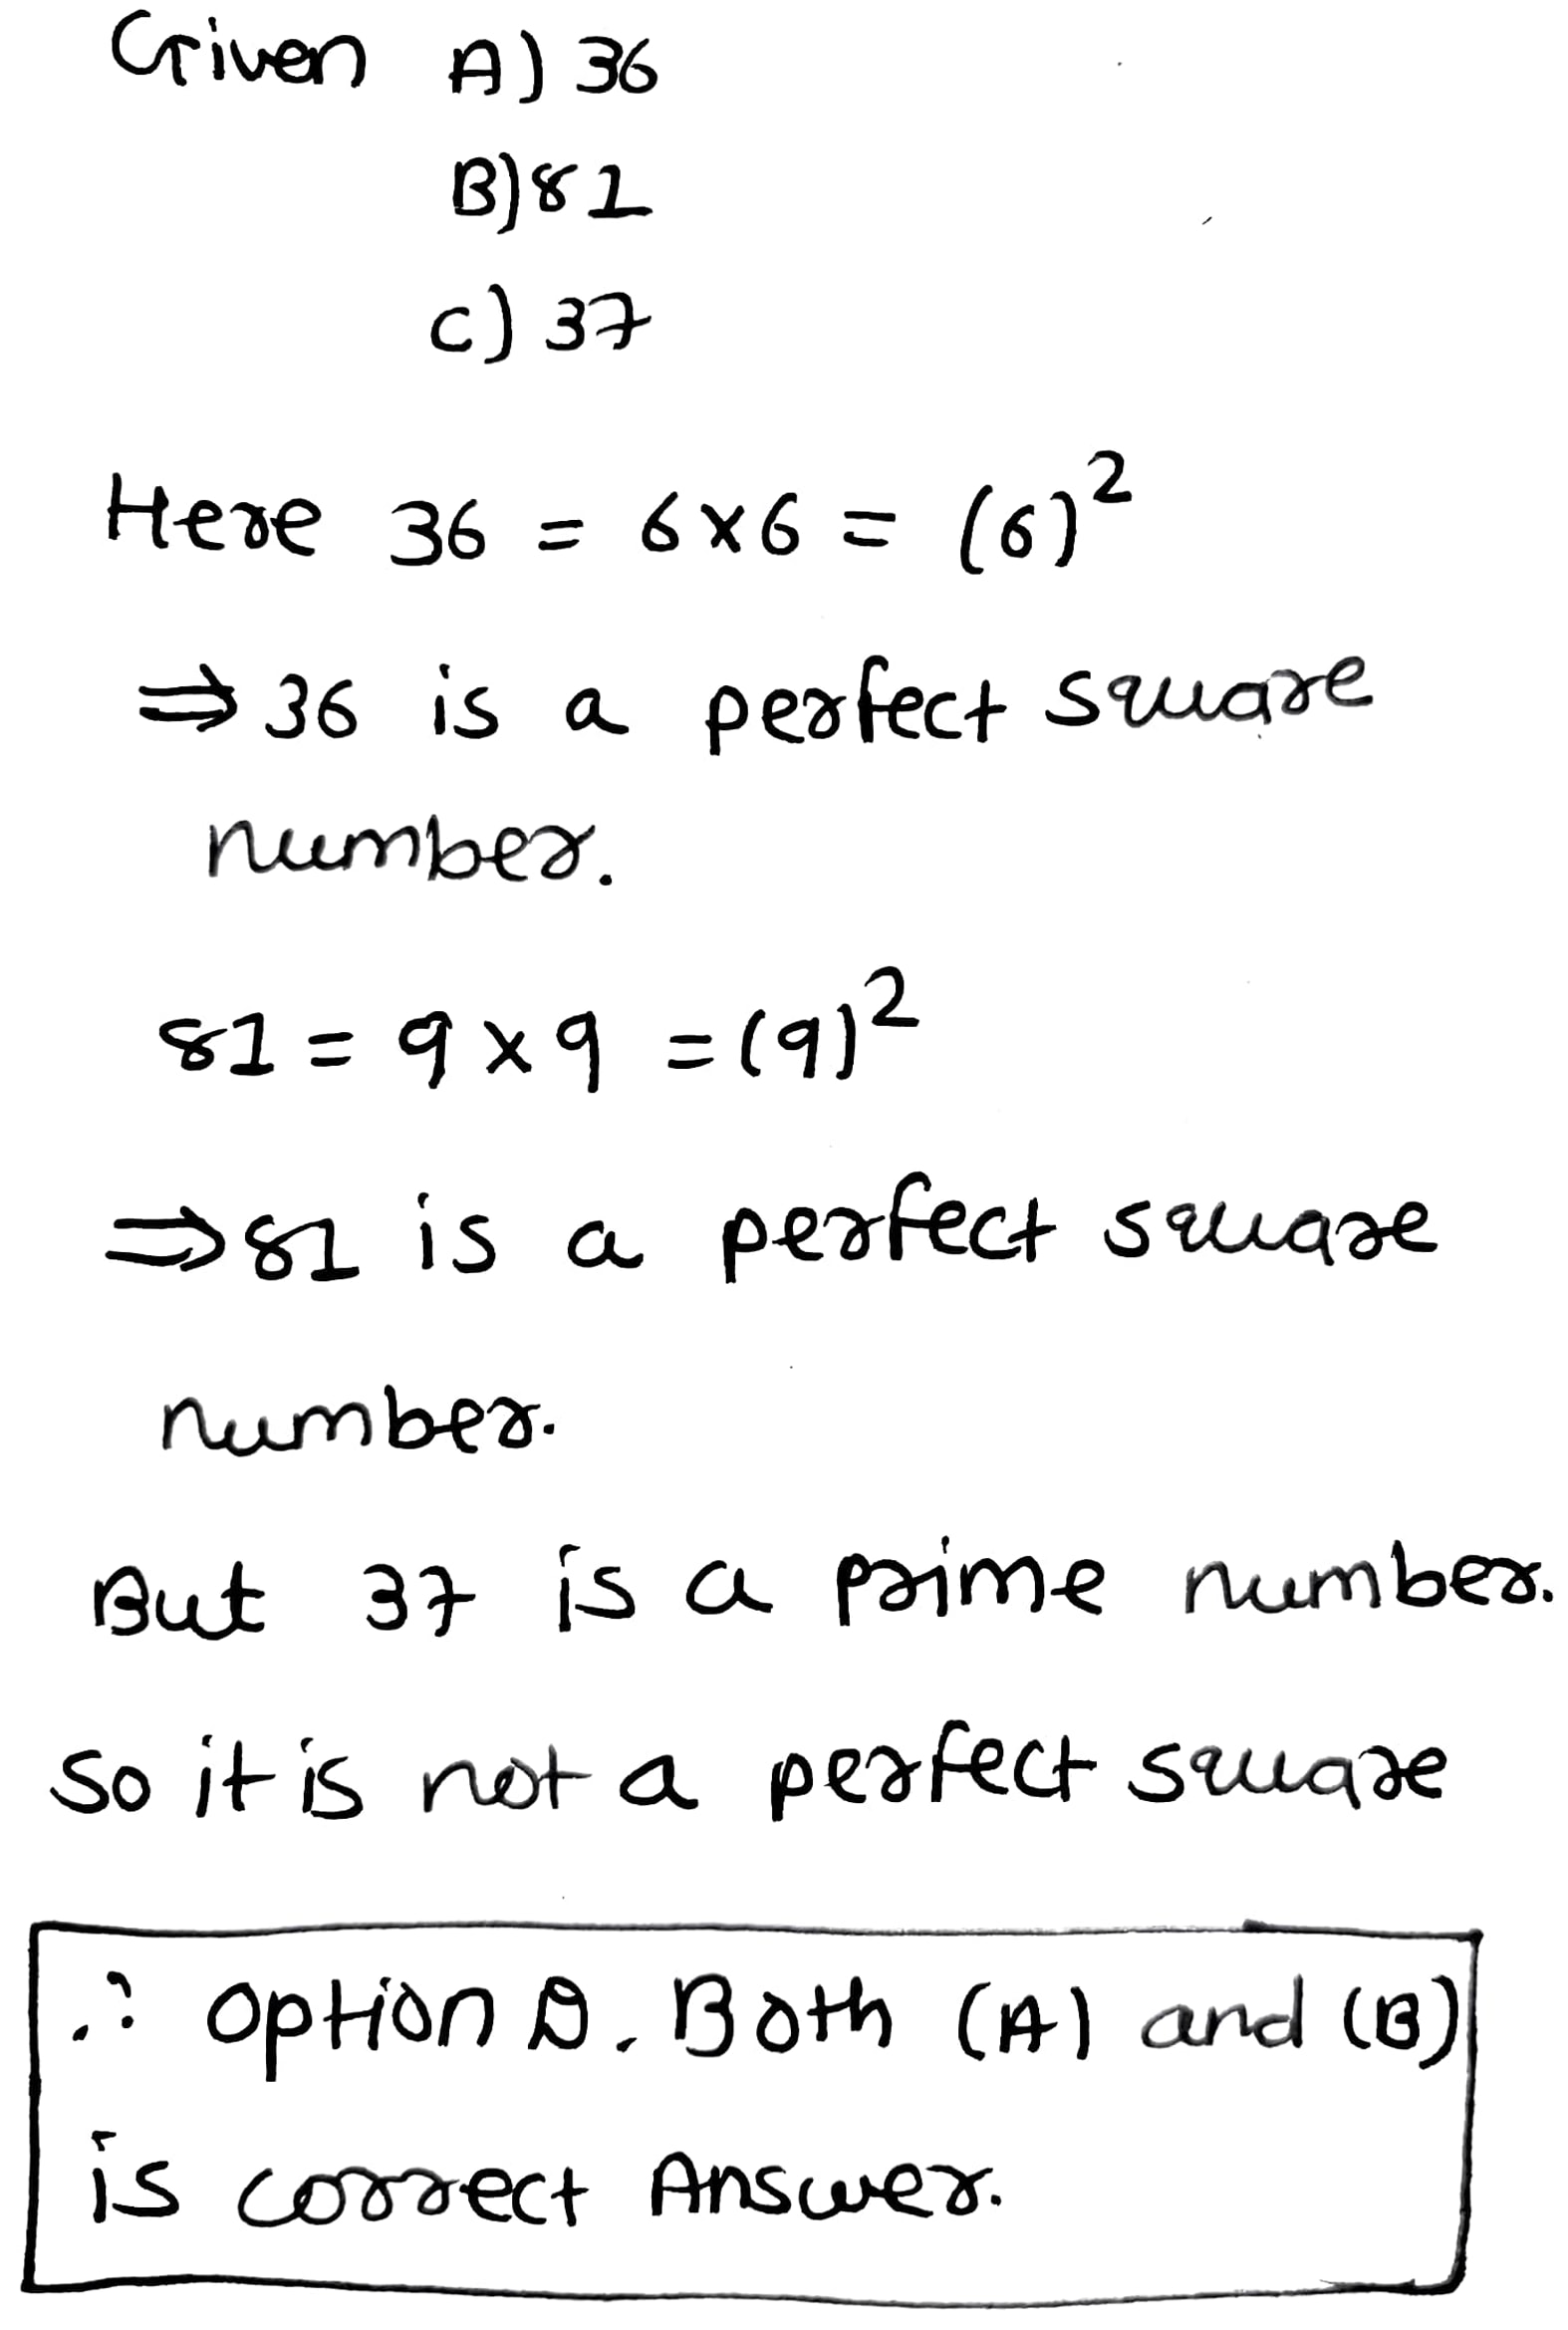 Given A) 36
B) 81
C) 37
Here 36 = 6×6 = (6)²
⇒ 36 is a perfect square
number.
81 = 9×9 = (9)²
⇒ 81 is a perfect square
number.
But 37 is a prime number.
so it is not a perfect square
∴ option D. Both (A) and (B)
is correct Answer.